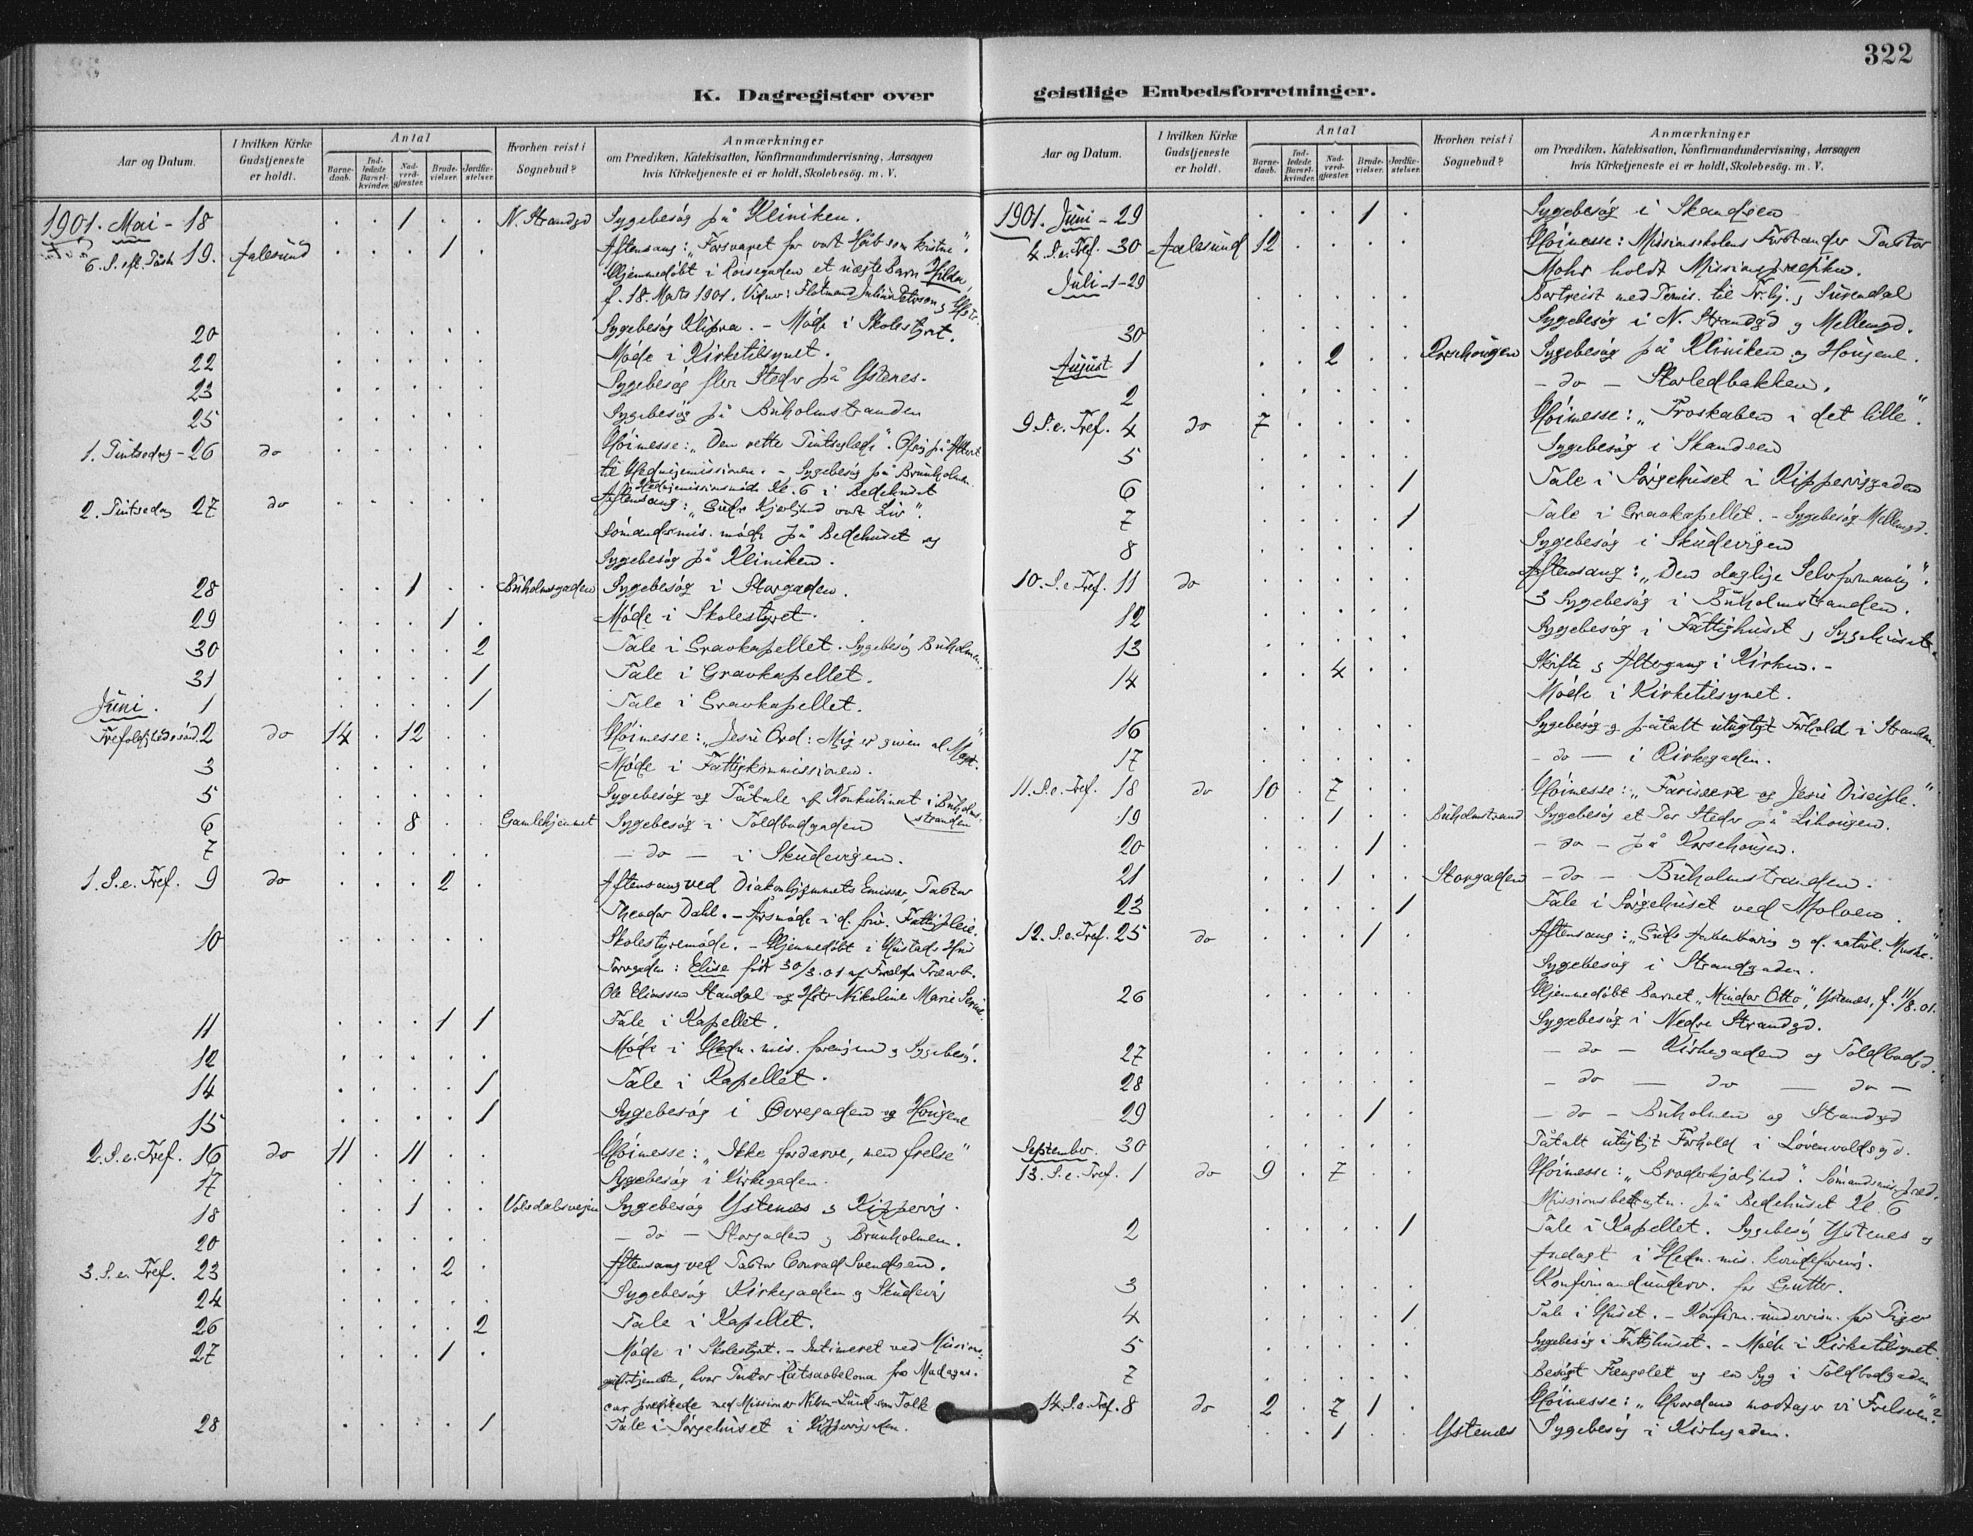 322
K. Dagregister over
geistlige Embedsforretninger.
Aar og Datum.
I hvilken Kirke Gudstjeneste er holdt.
Antal
Barne-daab.
Ind-ledede Barsel-kvinder.
Nad-verd-gjæster.
Brude-vielser.
Jordfæ-stelser.
Hvorhen reist i Sognebud?
Anmærkninger
om Prædiken, Katekisation, Konfirmandundervisning, Aarsagen
hvis Kirketjeneste ei er holdt, Skolebesøg. m. V.
1901. Mai - 18 1 N. Strandgd Sygebesøg på Kliniken.
6. S. eft. Påsk 19. Aalesund 1 Aftensang: „Forsvaret for vort Håb som kristne".
Hjemmedøbt i Røisegaden et Barn Hilda,
f. 18. Marts 1901.
20 Sygebesøg Klipra. - Møde i Skolestyret.
22 Møde i Kirketilsynet.
23 Sygebesøg flere Steder på Ystenes.
25 Sygebesøg på Buholmstranden
1. Pintsedag - 26 do Høimesse: „Den rette Pintseglæde".
til Hedningemissionen. - Sygebesøg på Brunholmen.
Kl. 6 i Bedehuset
2. Pintsedag 27 do Aftensang: „Guds Kjærlighed vort Liv".
Sømandsmis. møde på Bedehuset og
Sygebesøg på Kliniken.
28 1 Buholmsgaden Sygebesøg i Storgaden.
29 1 Møde i Skolestyret.
30 2 Tale i Gravkapellet. Sygebesøg Buholmen.
31 1 Tale i Gravkapellet.
Juni. 1 1 Tale i Gravkapellet.
Trefoldighedssønd. 2 do 14 12 Høimesse: „Jesu Ord: Mig er given al Magt".
3 Møde i Fattigkommissionen.
5 Sygebesøg og Påtale af Konkubinat i Buholm-
stranden
6 8 Gamlehjemmet Sygebesøg i Toldbodgaden
7 - do - i Skudevigen.
1. S. e. Tref. 9 do 2 Aftensang ved Diakonhjemmets Emissær, Pastor
Theodor Dahl. - Årsmøde i d. friv. Fattigpleie.
10 Skolestyremøde. - Hjemmedøbt i Hus
: Elise født 30/3.01 af Forældre
Ole Standal og Hstr Nikoline Marie
11 1 1 Tale i Kapellet.
12 Møde i Hedn. mis. foreningen og Sygebesøg.
14 1 Tale i Kapellet.
15 1 Sygebesøg i Øvregaden og Hougene
2. S. e. Tref. 16 do 11 11 Høimesse: „Ikke fordærve, men frelse"
17 Sygebesøg i Kirkegaden.
18 1 Volsdalsveien Sygebesøg Ystenes og Kippervig.
20 - do - Storgaden og Brunholmen.
3. S. e. Tref. 23 2 Aftensang ved Pastor Conrad Svendsen.
24 Sygebesøg Kirkegaden og Skudevig
26 2 Tale i Kapellet.
27 1 Møde i Skolestyret. - Intimeret ved Missions-
gudstjeneste, hvor Pastor Ratsaobelona fra Madagas-
car prædikede med Missionær Nilsen-Lund som Tolk
28 1 Tale i Sørgehuset i Kippervigaden.
Aar og Datum.
I hvilken Kirke Gudstjeneste er holdt.
Antal
Barne-daab.
Ind-ledede Barsel-kvinder.
Nad-verd-gjæster.
Brude-vielser.
Jordfæ-stelser.
Hvorhen reist i Sognebud?
Anmærkninger
om Prædiken, Katekisation, Konfirmandundervisning, Aarsagen
hvis Kirketjeneste ei er holdt, Skolebesøg. m. V.
1901. Juni - 29 1 Sygebesøg i Skandsen
4. S. e. Tref. 30 Aalesund 12 Høimesse: Missionsskolens Forstander Pastor
Mohr holdt Missionsprædiken.
Juli - 1 - 29 Bortreist med Permis. til Tr.hj. og Surendal
30 Sygebesøg i N. Strandgd og Mellemgd.
August 1 2 Korschougen Sygebesøg på Kliniken og Hougene.
2 - do - Storledbakken.
9. S. e. Tref. 4 do 7 Høimesse: „Troskaben i det lille".
5 Sygebesøg i Skandsen
6 1 Tale i Sørgehuset i Kippervigaden
7 1 Tale i Gravkapellet. - Sygebesøg Mellemgd.
8 Sygebesøg i Skudevigen
10. S. e. Tref. 11 do Aftensang: „Den daglige Selvformaning".
12 3 Sygebesøg i Buholmstranden.
13 Sygebesøg i Fattighuset og Sygehuset
14 4 Skrifte og Altergang i Kirken. -
Møde i Kirketilsynet.
16 Sygebesøg og påtalt utugtigt Forhold i Stranden.
17 - do - i Kirkegaden.
11. S. e. Tref. 18 do 10 7 Høimesse: „Farisæere og Jesu Disciple."
19 1 Buholmstrand Sygebesøg et Par Steder på Lihougen.
20 1 - do - på Korschougen.
21 1 Storgaden - do - Buholmstranden.
23 1 Tale i Sørgehuset ved Molven.
12. S. e. Tref. 25 do 1 Aftensang: „Guds Aabenbaring og d. naturl. Mske."
Sygebesøg i Strandgaden.
26 Hjemmedøbt Barnet „Mindar Otto", Ystenes, f. 11/8.01.
Sygebesøg i Nedre Strandgd.
27 - do - Kirkegaden og Toldbodgd.
28 - do - do - do -
29 1 - do - Buholmen og Strandgd
30 Påtalt utugtigt Forhold i Løvenvoldsgd.
September.
13. S. e. Tref. 1 do 9 7 Høimesse: „Broderkjærlighed". Sømandsmis. præd.
Missionsbetragtn. på Bedehuset Kl. 6
2 1 Tale i Kapellet. Sygebesøg Ystenes og
Andagt i Hedn. mis. Kvindeforening.
3 Konfirmandunderv. for Gutter.
4 1 Tale i Huset. - Konfirm. undervisn. for Piger
5 Sygebesøg i Fattighuset. - Møde i Kirketilsynet.
7 Besøgt Fængslet og en Syg i Toldbodgaden
14. S. e. Tref. 8 do 2 7 1 Høimesse: „Hvordan modtager vi Frelsen?"
1 Ystenes Sygebesøg i Kirkegaden.